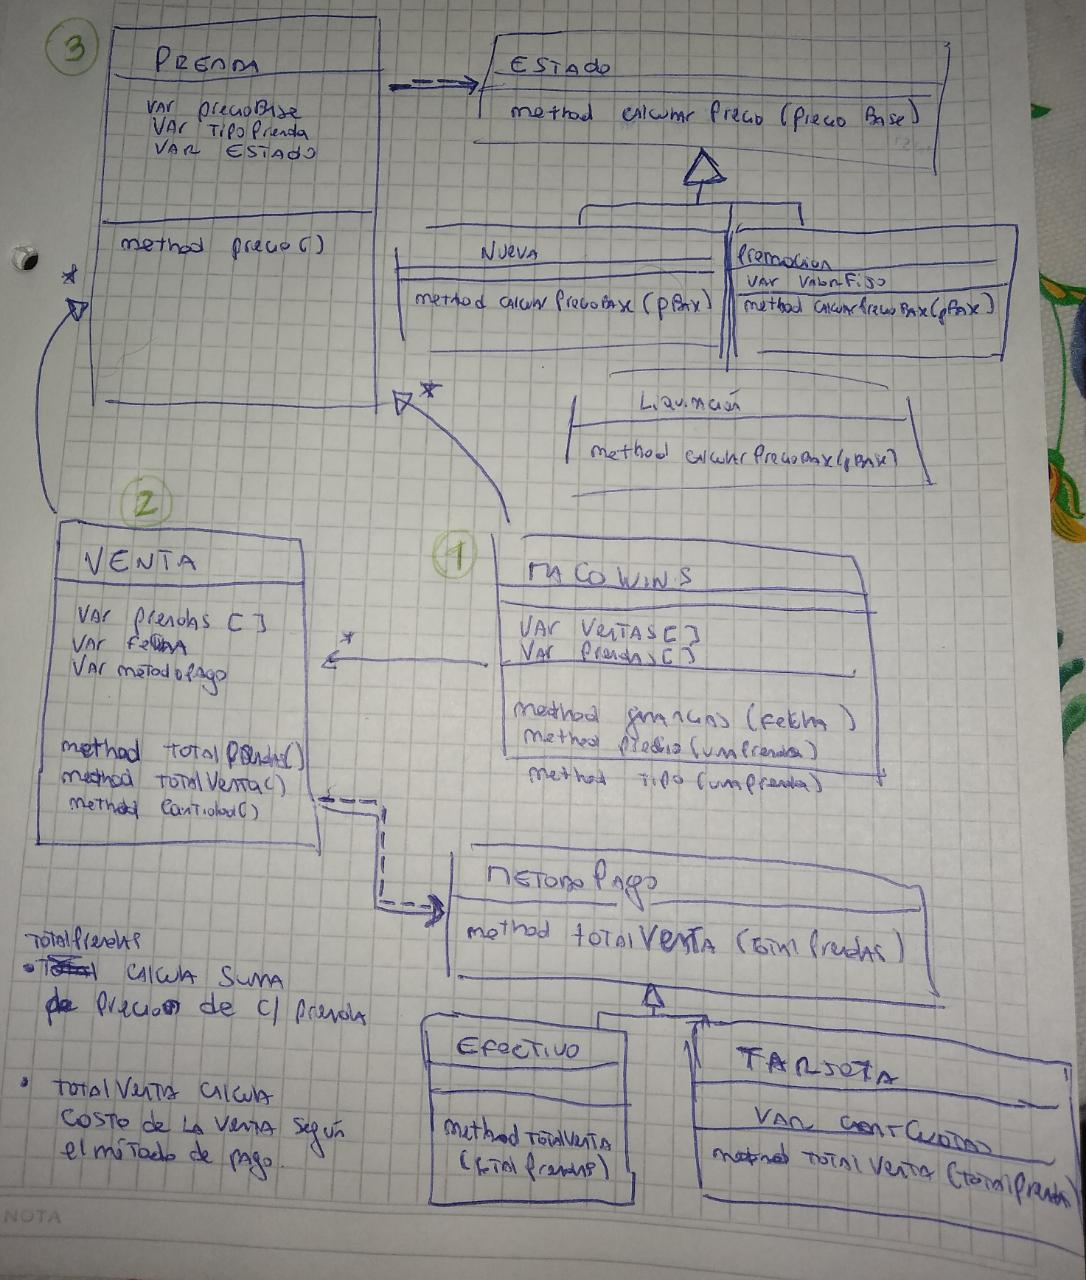 3
PRENDA
VAR precioBase
VAR TipoPrenda
VAR ESTADO
method precio()
*
ESTADO
method calcular Precio (precio Base)
NUEVA
method calcular PrecioBase (pBase)
Promocion
VAR ValorFijo
method calcularPrecioBase(pBase)
*
Liquidación
method calcularPrecioBase(pBase)
2
VENTA
VAR prendas []
VAR fecha
VAR metodoPago
method totalPrendas()
method totalVenta()
method Cantidad()
1
MACOWINS
VAR VentAS[]
VAR prendas[]
*
method ganancias (fecha)
method precio(unaPrenda)
method Tipo (unaPrenda)
METODO PAgo
method totalVenta (total Prendas)
EfecTIVO
method TotalVenta
(total prendas)
TARJETA
VAR cantCuotas
method TOTAL VentA (TotalPrendas)
TotalPrendas
• calcula suma
de precios de c/ prenda
• TOTAL VentA calcula
COSTO de LA VentA según
el método de pago.
NOTA